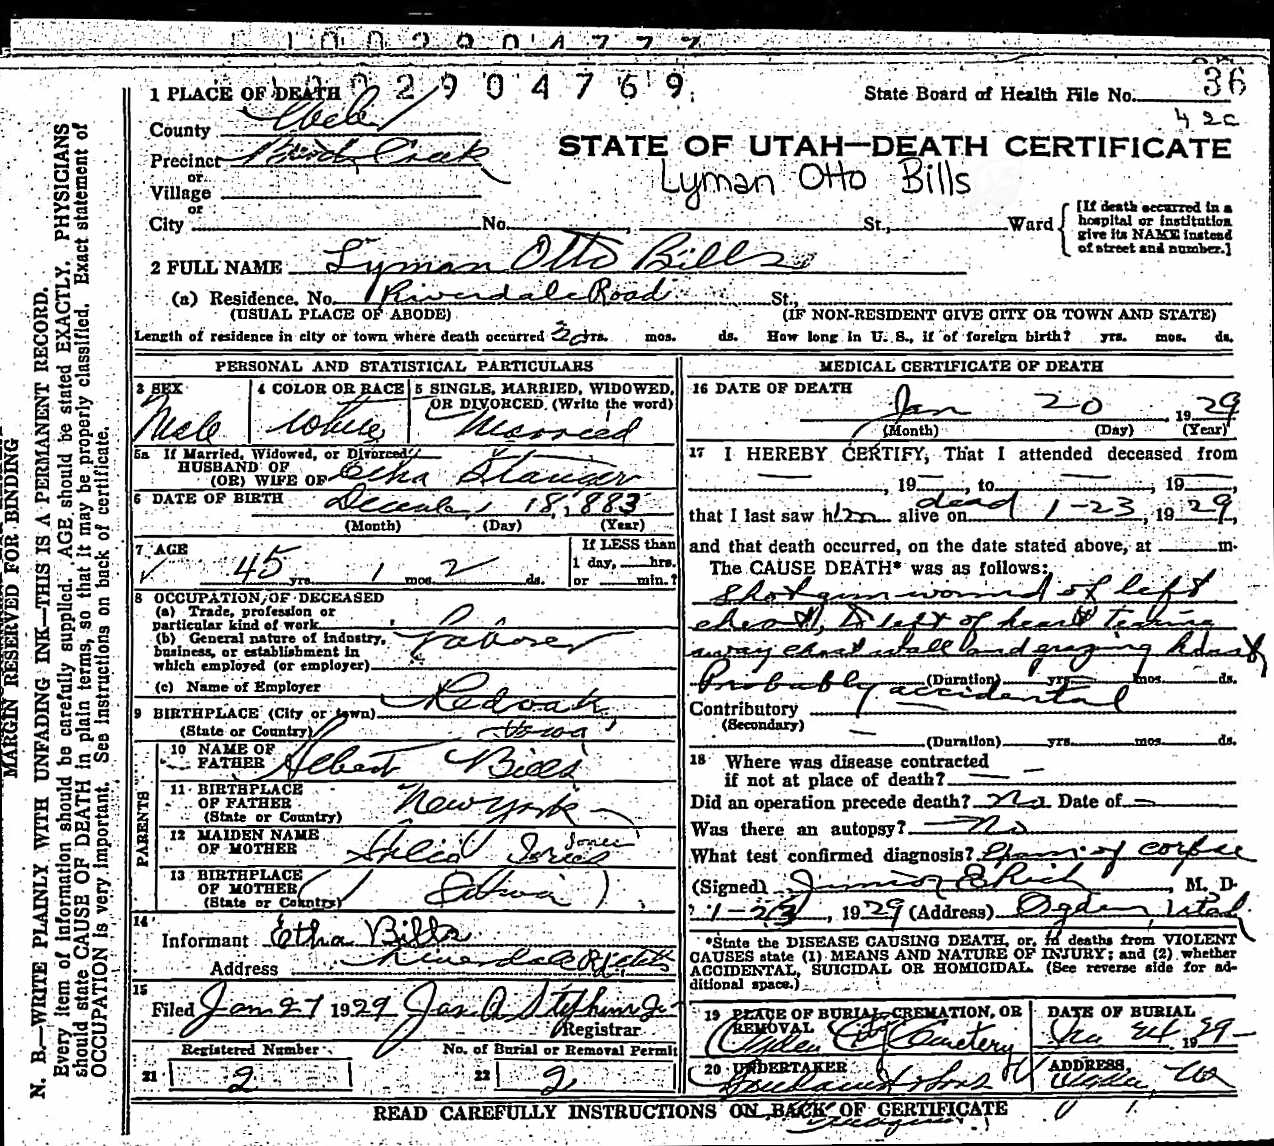 1002904777
1002904769
36
State Board of Health File No.
1 PLACE OF DEATH
County Weber
Precinct Birch Creek
or
Village
or
City No. St., Ward
STATE OF UTAH—DEATH CERTIFICATE
Lyman Otto Bills
[If death occurred in a
hospital or institution
give its NAME instead
of street and number.]
2 FULL NAME Lyman Otto Bills
(a) Residence, No. Riverdale Road St.,
(USUAL PLACE OF ABODE) (IF NON-RESIDENT GIVE CITY OR TOWN AND STATE)
Length of residence in city or town where death occurred yrs. mos. ds. How long in U. S., if of foreign birth? yrs. mos. ds.
PERSONAL AND STATISTICAL PARTICULARS
3 SEX
Male
4 COLOR OR RACE
White
5 SINGLE, MARRIED, WIDOWED,
OR DIVORCED (Write the word)
Married
5a If Married, Widowed, or Divorced
HUSBAND OF
(OR) WIFE OF Etha Stanger
6 DATE OF BIRTH December 18, 1883
(Month) (Day) (Year)
7 AGE
45 yrs. 1 mos. 2 ds.
If LESS than
1 day, hrs.
or min.?
8 OCCUPATION OF DECEASED
(a) Trade, profession or
particular kind of work
(b) General nature of industry,
business, or establishment in
which employed (or employer)
Laborer
(c) Name of Employer
9 BIRTHPLACE (City or town) Redoak
(State or Country) Iowa
PARENTS
10 NAME OF
FATHER Albert Bills
11 BIRTHPLACE
OF FATHER New York
(State or Country)
12 MAIDEN NAME
OF MOTHER Jones
13 BIRTHPLACE
OF MOTHER
(State or Country)
14
Informant Etha Bills
Address Riverdale
15
Filed Jan 27 1929 Jas A Stephens Jr
Registrar
Registered Number No. of Burial or Removal Permit
21 2 22 2
MEDICAL CERTIFICATE OF DEATH
16 DATE OF DEATH
Jan 20, 1929
(Month) (Day) (Year)
17 I HEREBY CERTIFY, That I attended deceased from
, 19 , to , 19 ,
that I last saw him alive on dead 1-23, 1929,
and that death occurred, on the date stated above, at m.
The CAUSE DEATH* was as follows:
Shot gun wound of left
chest, to left of heart tearing
away chest wall and grazing heart
(Duration) yrs. mos. ds.
Probably accidental
Contributory
(Secondary)
(Duration) yrs. mos. ds.
18 Where was disease contracted
if not at place of death?
Did an operation precede death? No Date of
Was there an autopsy? No
What test confirmed diagnosis? Exam of corpse
(Signed) Junior E Rich, M. D.
1-23, 1929 (Address) Ogden, Utah
*State the DISEASE CAUSING DEATH, or, in deaths from VIOLENT
CAUSES state (1) MEANS AND NATURE OF INJURY; and (2) whether
ACCIDENTAL, SUICIDAL OR HOMICIDAL. (See reverse side for ad-
ditional space.)
19 PLACE OF BURIAL, CREMATION, OR
REMOVAL
Ogden City Cemetery
DATE OF BURIAL
Jan 24 1929
20 UNDERTAKER
& Sons
ADDRESS,
Ogden, Ut
READ CAREFULLY INSTRUCTIONS ON BACK OF CERTIFICATE
MARGIN RESERVED FOR BINDING
N. B.—WRITE PLAINLY WITH UNFADING INK—THIS IS A PERMANENT RECORD.
Every item of information should be carefully supplied. AGE should be stated EXACTLY. PHYSICIANS
should state CAUSE OF DEATH in plain terms, so that it may be properly classified. Exact statement of
OCCUPATION is very important. See instructions on back of certificate.